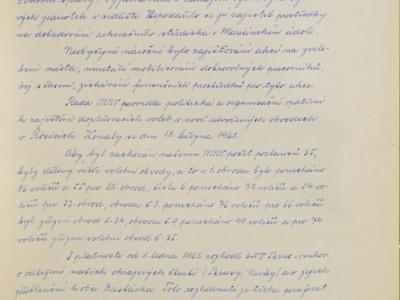 vých jednotek v sídlišti. Nepodařilo se jí zajistit prostředky
na dobudování rekreačního střediska v Mariánském údolí.
Neobyčejně náročné bylo zajišťování akcí na zvele-
bení města, neustálé mobilizování dobrovolných pracovníků
by s časem, získávání finančních prostředků pro tyto akce.
Rada MNV provedla politická a organisační opatření
k zajištění doplňovacích voleb v nově utvořených obvodech
v Rosicích. Konaly se dne 18. března 1962.
Aby byl zachován našemu MNV počet poslanců 35,
byly děleny větší volební obvody, a to v 1. obvodu bylo ponecháno
86 voličů a 55 pro 32. obvod, číslu 6 ponecháno 72 voličů a 64 vo-
ličů pro 33. obvod, obvodu č. 7. ponecháno 76 voličů pro 66 voličů
byl zřízen obvod č. 34, obvodu č. 9 ponecháno 49 voličů a pro 74
voličů zřízen volební obvod č. 35.
S platností od 1. ledna 1962 rozhodl ONV Brno-venkov
o odloučení našich okrajových částí
přičlenění k obci Zastávka. Toto rozhodnutí je třeba považovat